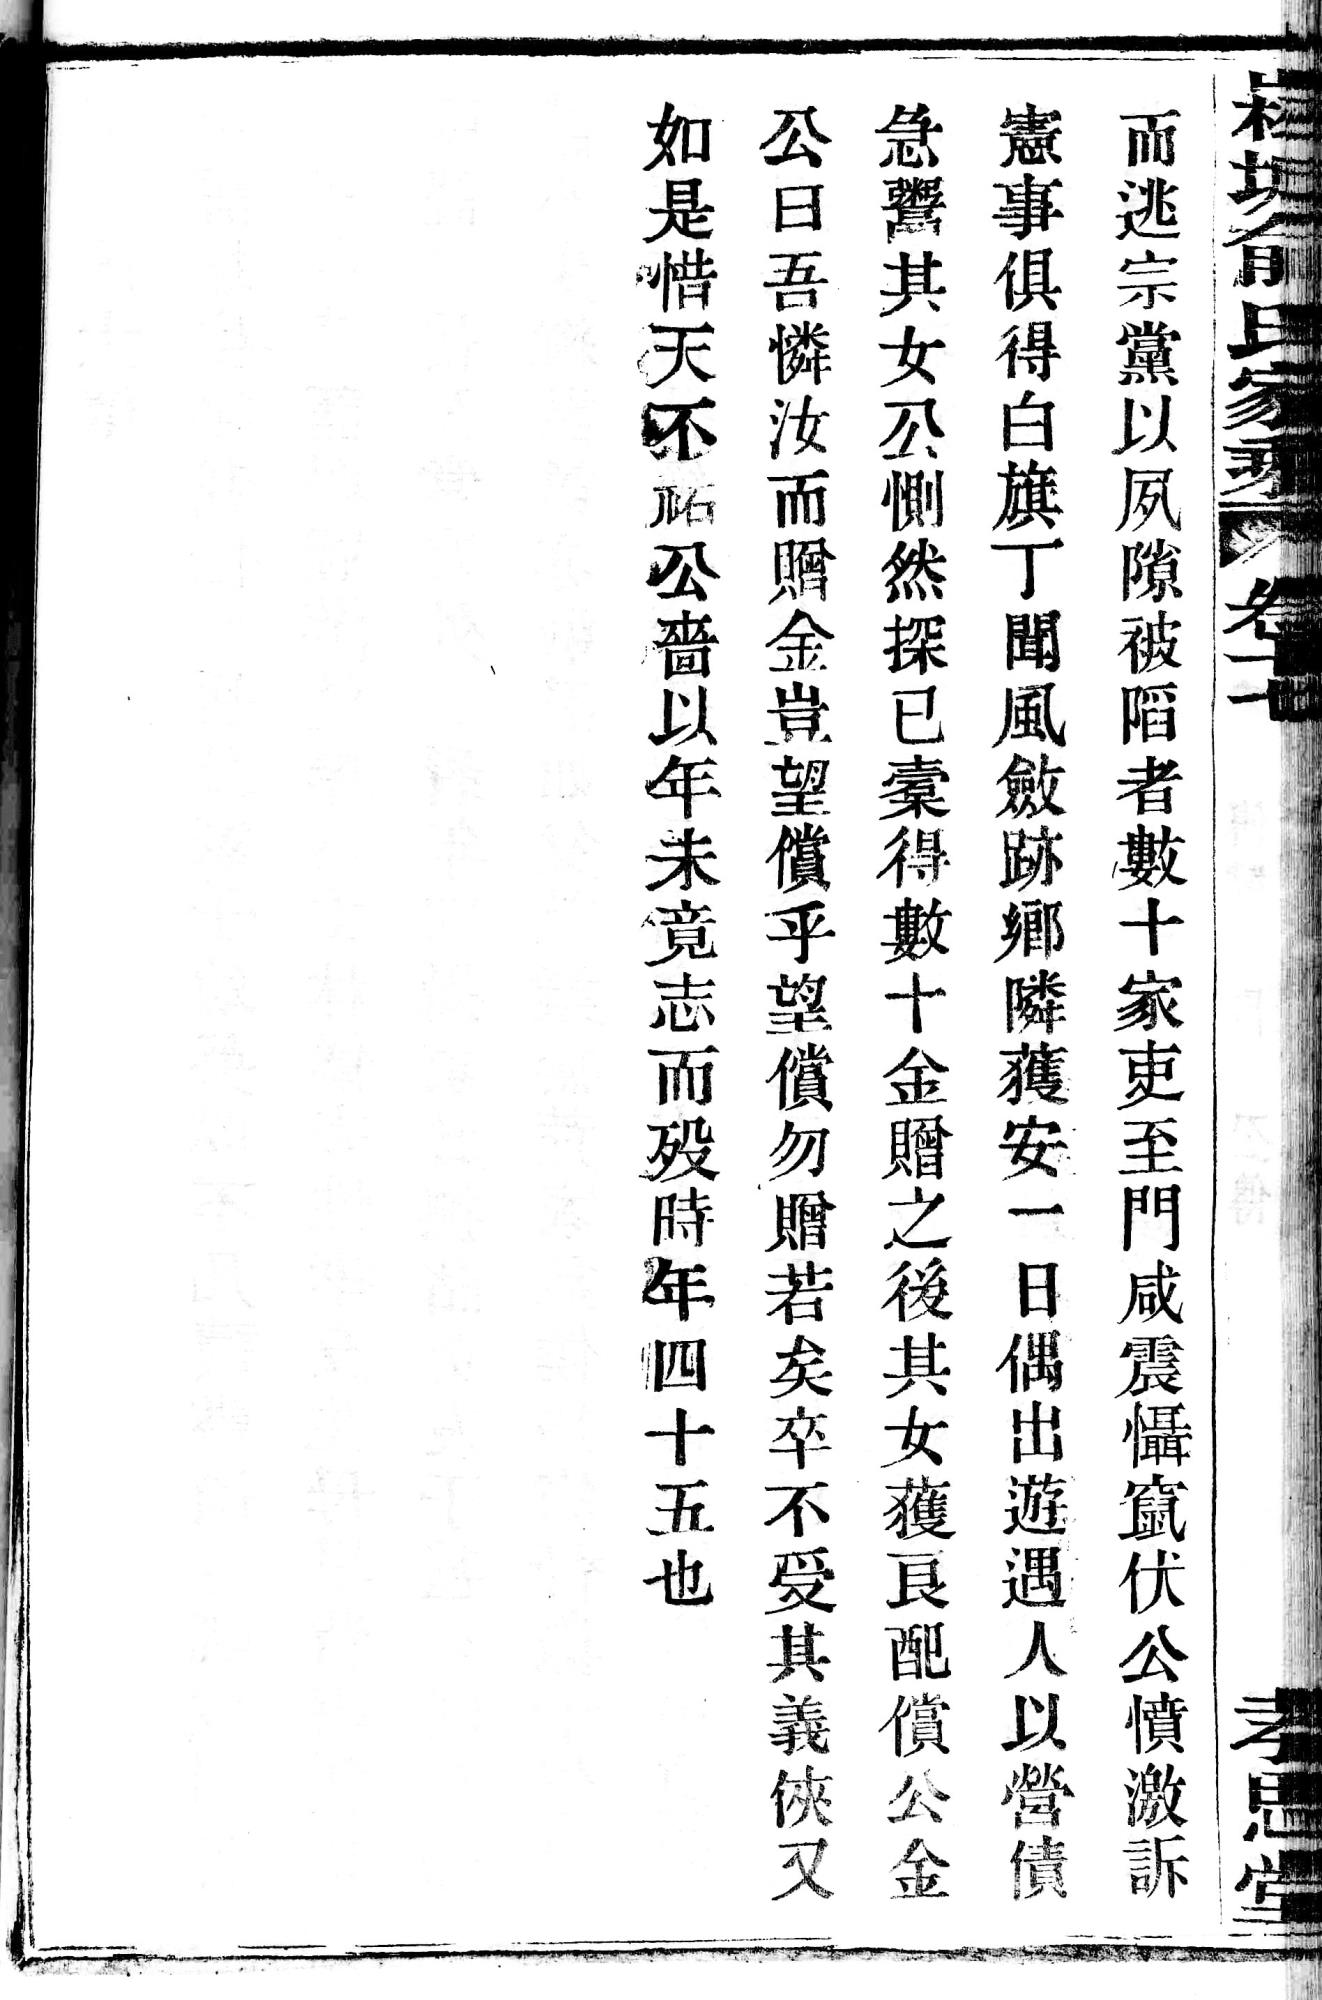 而逃宗黨以夙隙被陷者數十家吏至門咸震懾竄伏公憤激訴
憲事俱得白旗丁聞風斂跡鄉隣獲安一日偶出遊遇人以營債
急鬻其女公惻然探已橐得數十金贈之後其女獲良配償公金
公曰吾憐汝而贈金豈望償乎望償勿贈若矣卒不受其義俠又
如是惜天不祐公嗇以年未竟志而歿時年四十五也
俞氏家乘 卷十七 孝思堂